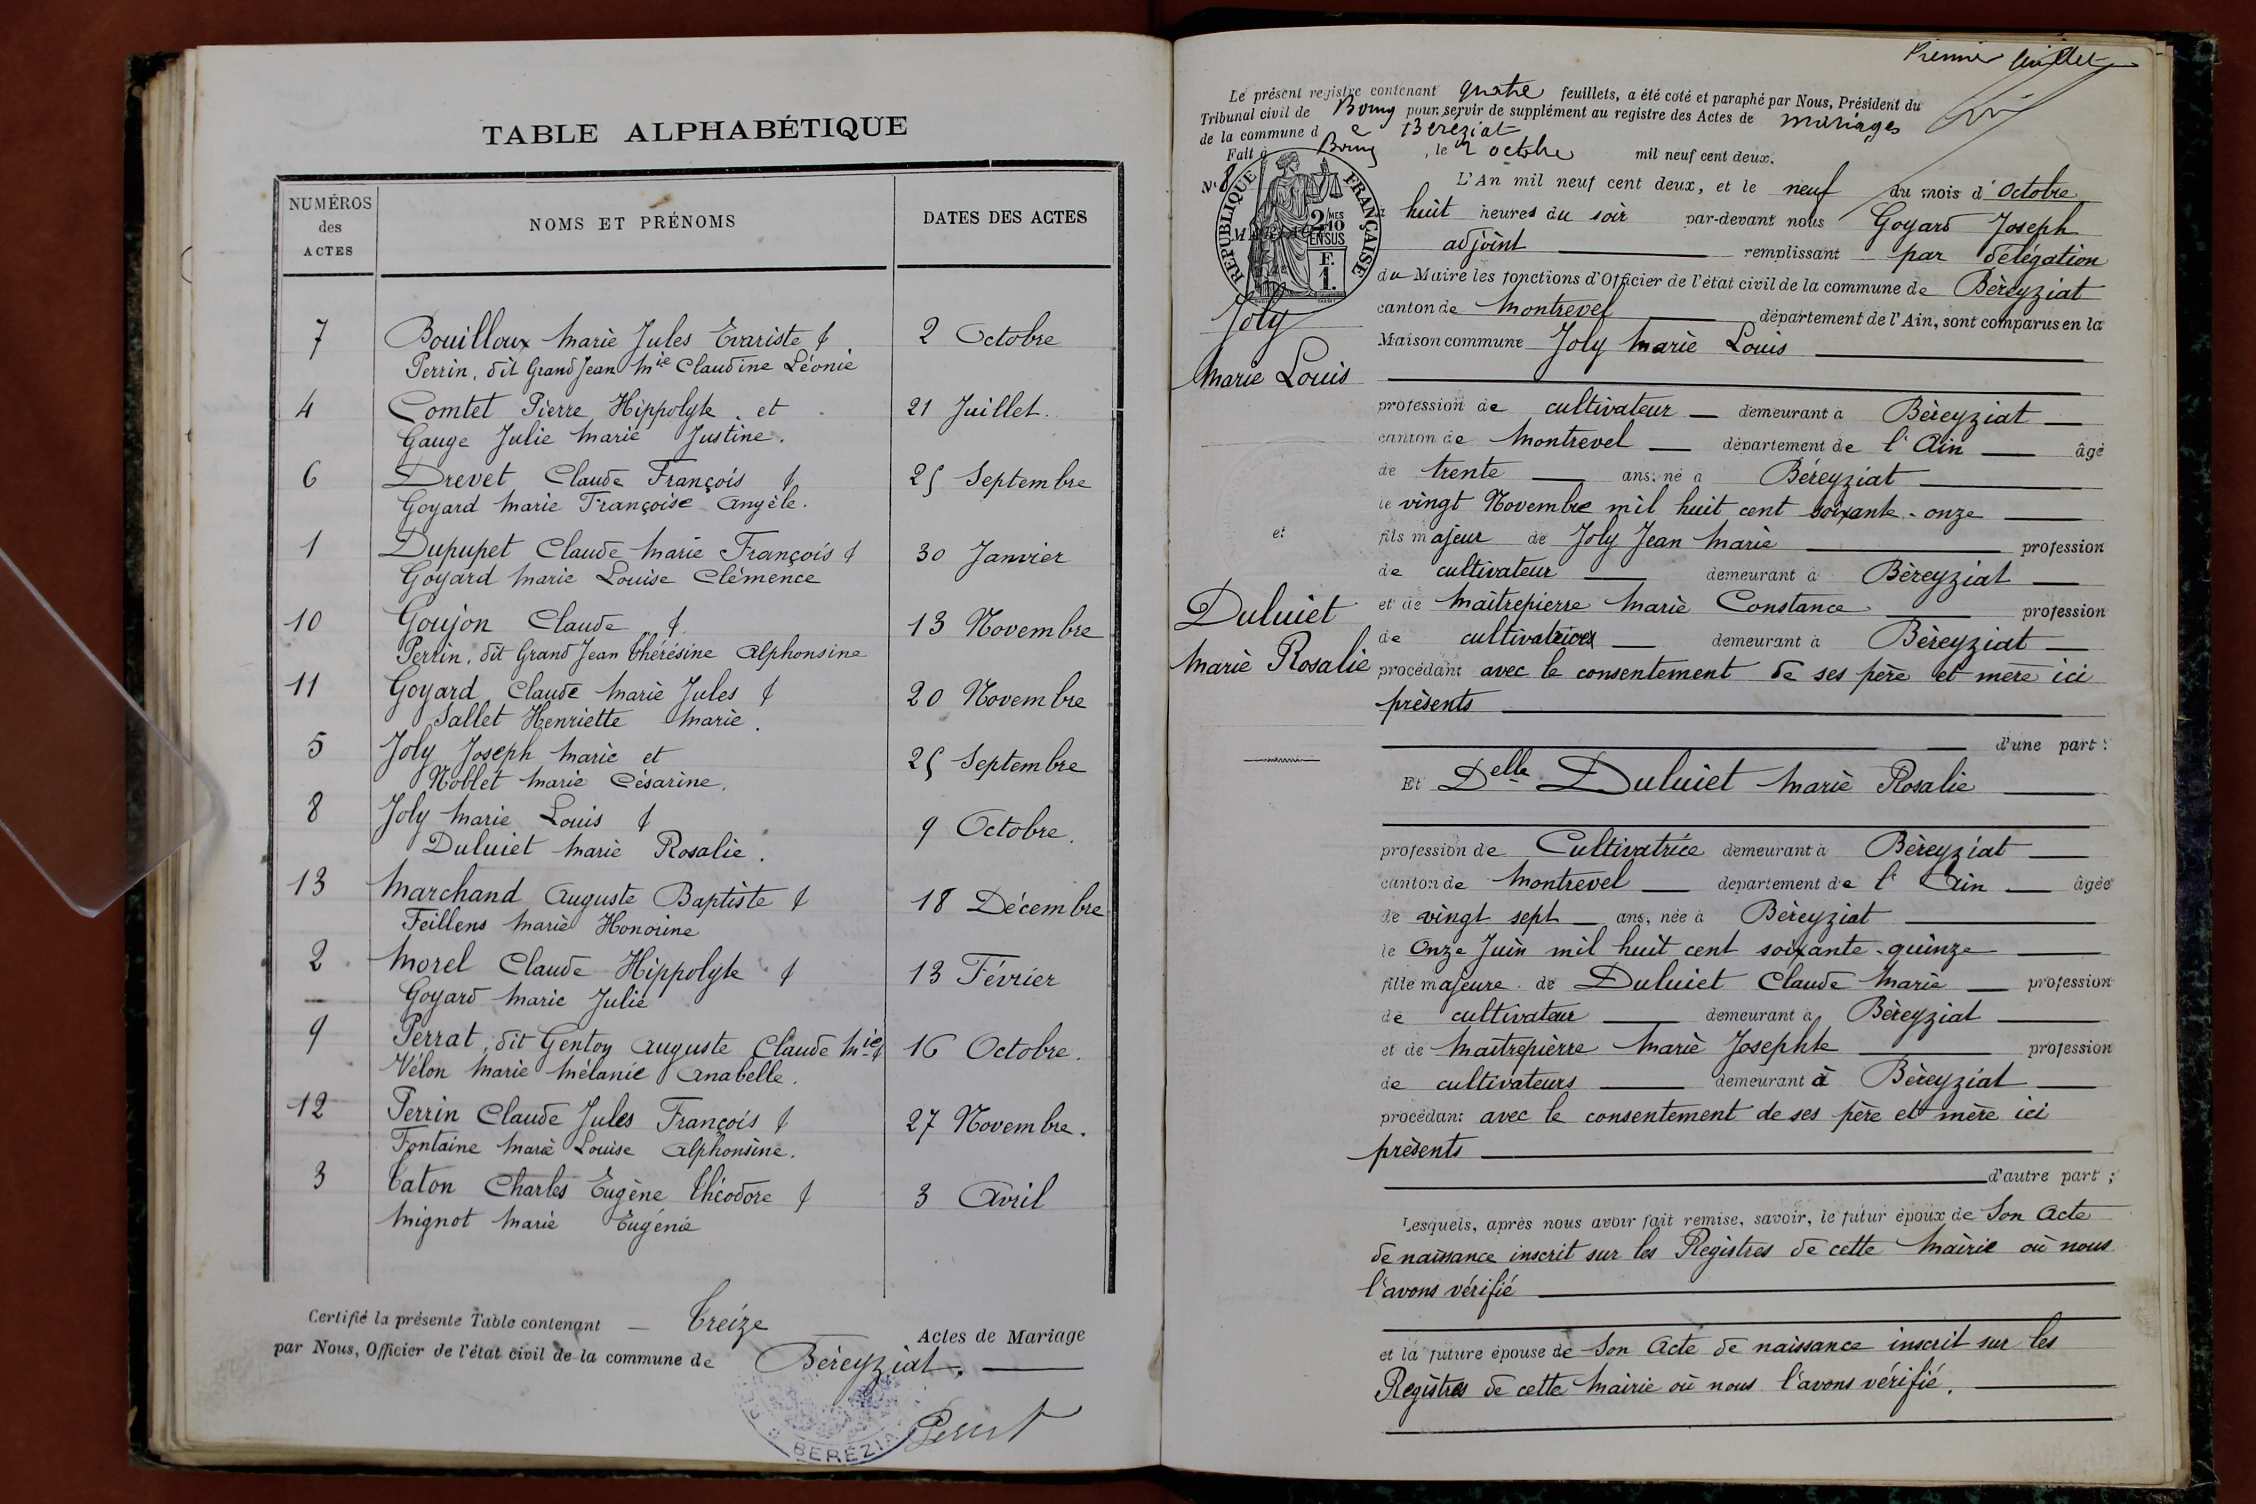 TABLE ALPHABÉTIQUE
NUMÉROS des ACTES
NOMS ET PRÉNOMS
DATES DES ACTES
7 Bouilloux Marie Jules Evariste & 2 Octobre
Perrin, dit Grand Jean Mie Claudine Léonie
4 Comtet Pierre Hippolyte et 21 Juillet.
Gauge Julie Marie Justine.
6 Drevet Claude François & 25 Septembre
Goyard Marie Françoise Angèle.
1 Dupupet Claude Marie François & 30 Janvier
Goyard Marie Louise Clémence
10 Goujon Claude & 13 Novembre
Perrin, dit Grand Jean Thérésine Alphonsine
11 Goyard Claude Marie Jules & 20 Novembre
Sallet Henriette Marie.
5 Joly Joseph Marie et 25 Septembre
Noblet Marie Césarine.
8 Joly Marie Louis & 9 Octobre.
Duluiet Marie Rosalie.
13 Marchand Auguste Baptiste & 18 Décembre
Feillens Marie Honorine
2 Morel Claude Hippolyte & 13 Février
Goyard Marie Julie
9 Perrat, dit Genton Auguste Claude Mie & 16 Octobre.
Vélon Marie Mélanie Anabelle.
12 Perrin Claude Jules François & 27 Novembre.
Fontaine Marie Louise Alphonsine.
3 Taton Charles Eugène Théodore & 3 Avril
Mignot Marie Eugénie
Certifié la présente Table contenant Treize Actes de Mariage
par Nous, Officier de l'état civil de la commune de Béreyziat.
BEREZIA
Premier feuillet
Le présent registre contenant quatre feuillets, a été coté et paraphé par Nous, Président du
Tribunal civil de Bourg pour servir de supplément au registre des Actes de mariages
de la commune de Bereziat
Fait à Bourg, le 2 octobre mil neuf cent deux.
No 8
RÉPUBLIQUE FRANÇAISE
2/10 MES EN SUS
F. 1.
L'An mil neuf cent deux, et le neuf du mois d'Octobre
à huit heures du soir par-devant nous Goyard Joseph
adjoint remplissant par délégation
du Maire les fonctions d'Officier de l'état civil de la commune de Béreyziat
canton de Montrevel département de l'Ain, sont comparus en la
Maison commune Joly Marie Louis
Joly
Marie Louis
et
Duluiet
Marie Rosalie
profession de cultivateur demeurant à Béreyziat
canton de Montrevel département de l'Ain âgé
de trente ans, né à Béreyziat
le vingt Novembre mil huit cent soixante-onze
fils majeur de Joly Jean Marie profession
de cultivateur demeurant à Béreyziat
et de Maitrepierre Marie Constance profession
de cultivatrice demeurant à Béreyziat
procédant avec le consentement de ses père et mère ici
présents
d'une part:
Et Delle Duluiet Marie Rosalie
profession de Cultivatrice demeurant à Béreyziat
canton de Montrevel département de l'Ain âgée
de vingt sept ans, née à Béreyziat
le Onze Juin mil huit cent soixante-quinze
fille majeure de Duluiet Claude Marie profession
de cultivateur demeurant à Béreyziat
et de Maitrepierre Marie Josephte profession
de cultivateurs demeurant à Béreyziat
procédant avec le consentement de ses père et mère ici
présents
d'autre part;
Lesquels, après nous avoir fait remise, savoir, le futur époux de Son Acte
de naissance inscrit sur les Registres de cette Mairie où nous
l'avons vérifié
et la future épouse de Son Acte de naissance inscrit sur les
Registres de cette Mairie où nous l'avons vérifié.